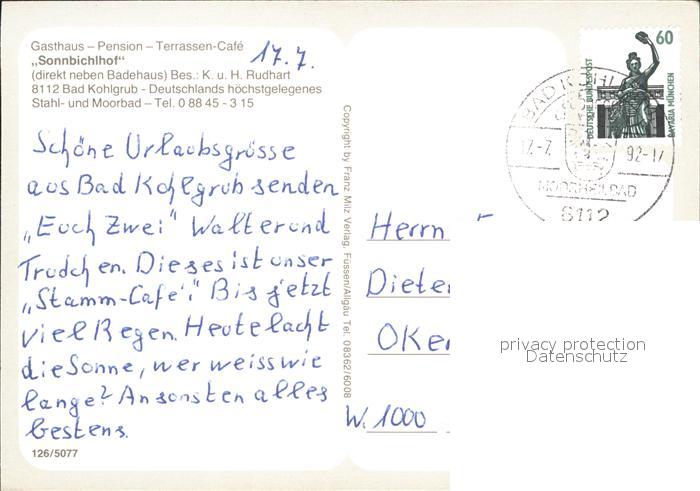 Gasthaus – Pension – Terrassen-Café
„Sonnbichlhof“
(direkt neben Badehaus) Bes.: K. u. H. Rudhart
8112 Bad Kohlgrub - Deutschlands höchstgelegenes
Stahl- und Moorbad – Tel. 0 88 45 - 3 15
17.7.
Schöne Urlaubsgrüsse
aus Bad Kohlgrub senden
„Euch Zwei" Walter und
Trudchen. Dieses ist unser
„Stamm-Cafe"! Bis jetzt
viel Regen. Heute lacht
die Sonne, wer weiss wie
lange? Ansonsten alles
bestens.
126/5077
Copyright by Franz Milz Verlag, Füssen/Allgäu Tel. 08362/6008
60
DEUTSCHE BUNDESPOST
BAVARIA MÜNCHEN
BAD KOHL
17.-7. 92-17
MOORHEILBAD
8112
Herrn
Dieter
Oker
W. 1000
privacy protection
Datenschutz